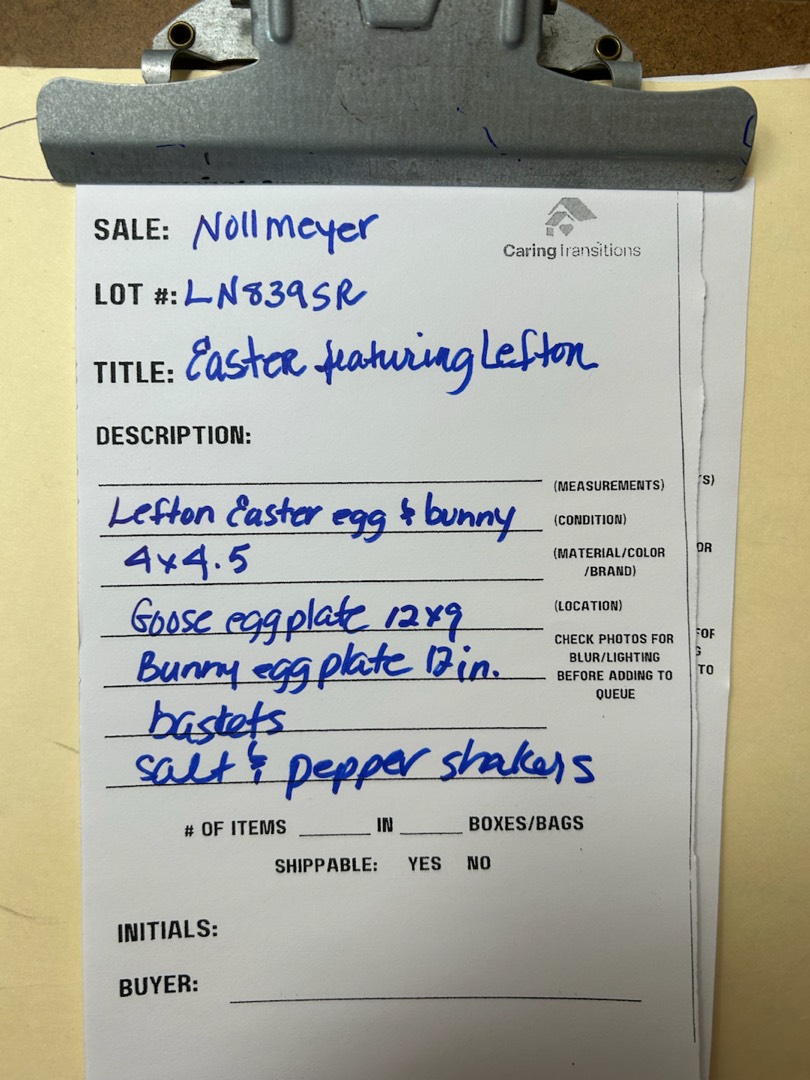 USA
SALE: Nollmeyer
CaringTransitions
LOT #: LN839SR
TITLE: Easter featuring Lefton
DESCRIPTION:
(MEASUREMENTS)
Lefton Easter egg & bunny
(CONDITION)
4x4.5
(MATERIAL/COLOR
/BRAND)
Goose egg plate 12x9
(LOCATION)
Bunny egg plate 12in.
CHECK PHOTOS FOR
BLUR/LIGHTING
BEFORE ADDING TO
QUEUE
baskets
salt & pepper shakers
# OF ITEMS ______ IN ______ BOXES/BAGS
SHIPPABLE: YES NO
INITIALS:
BUYER:
S)
OR
FOR
G
TO